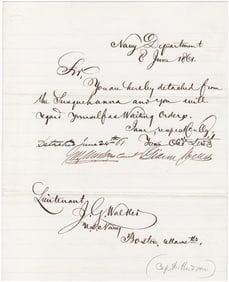 Navy Department
8 June 1861.
Sir,
You are hereby detached from
the Susquehanna and you will
regard yourself as Waiting Orders.
I am, respectfully,
Your Obt Servt
Detached June 24th 61
Lieutenant
J. G. Walker
U.S. Navy
Boston, Mass